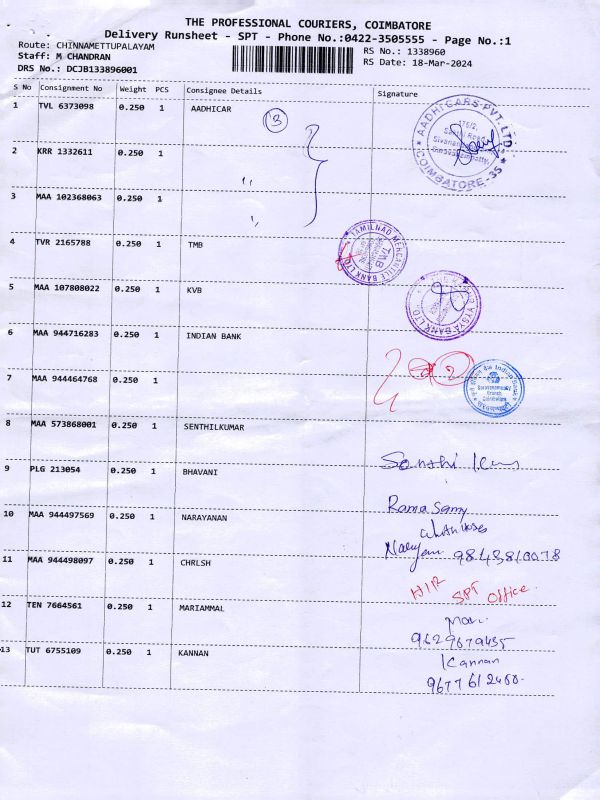 THE PROFESSIONAL COURIERS, COIMBATORE
Delivery Runsheet - SPT - Phone No.:0422-3505555 - Page No.:1
Route: CHINNAMETTUPALAYAM
RS No.: 1338960
Staff: M CHANDRAN
RS Date: 18-Mar-2024
DRS No.: DCJB133896001
S No Consignment No Weight PCS Consignee Details Signature
1 TVL 6373098 0.250 1 AADHICAR
3
AADHICARS PVT. LTD. COIMBATORE-35
2 KRR 1332611 0.250 1
3 MAA 102368063 0.250 1
4 TVR 2165788 0.250 1 TMB
TAMILNAD MERCANTILE BANK LTD
TMB
5 MAA 107808022 0.250 1 KVB
VYSYA BANK LTD
6 MAA 944716283 0.250 1 INDIAN BANK
2
Indian Bank
7 MAA 944464768 0.250 1
8 MAA 573868001 0.250 1 SENTHILKUMAR
9 PLG 213054 0.250 1 BHAVANI
Rama Samy
10 MAA 944497569 0.250 1 NARAYANAN
9843810078
11 MAA 944498097 0.250 1 CHRLSH
SPT office
12 TEN 7664561 0.250 1 MARIAMMAL
9629679435
13 TUT 6755109 0.250 1 KANNAN
Kannan